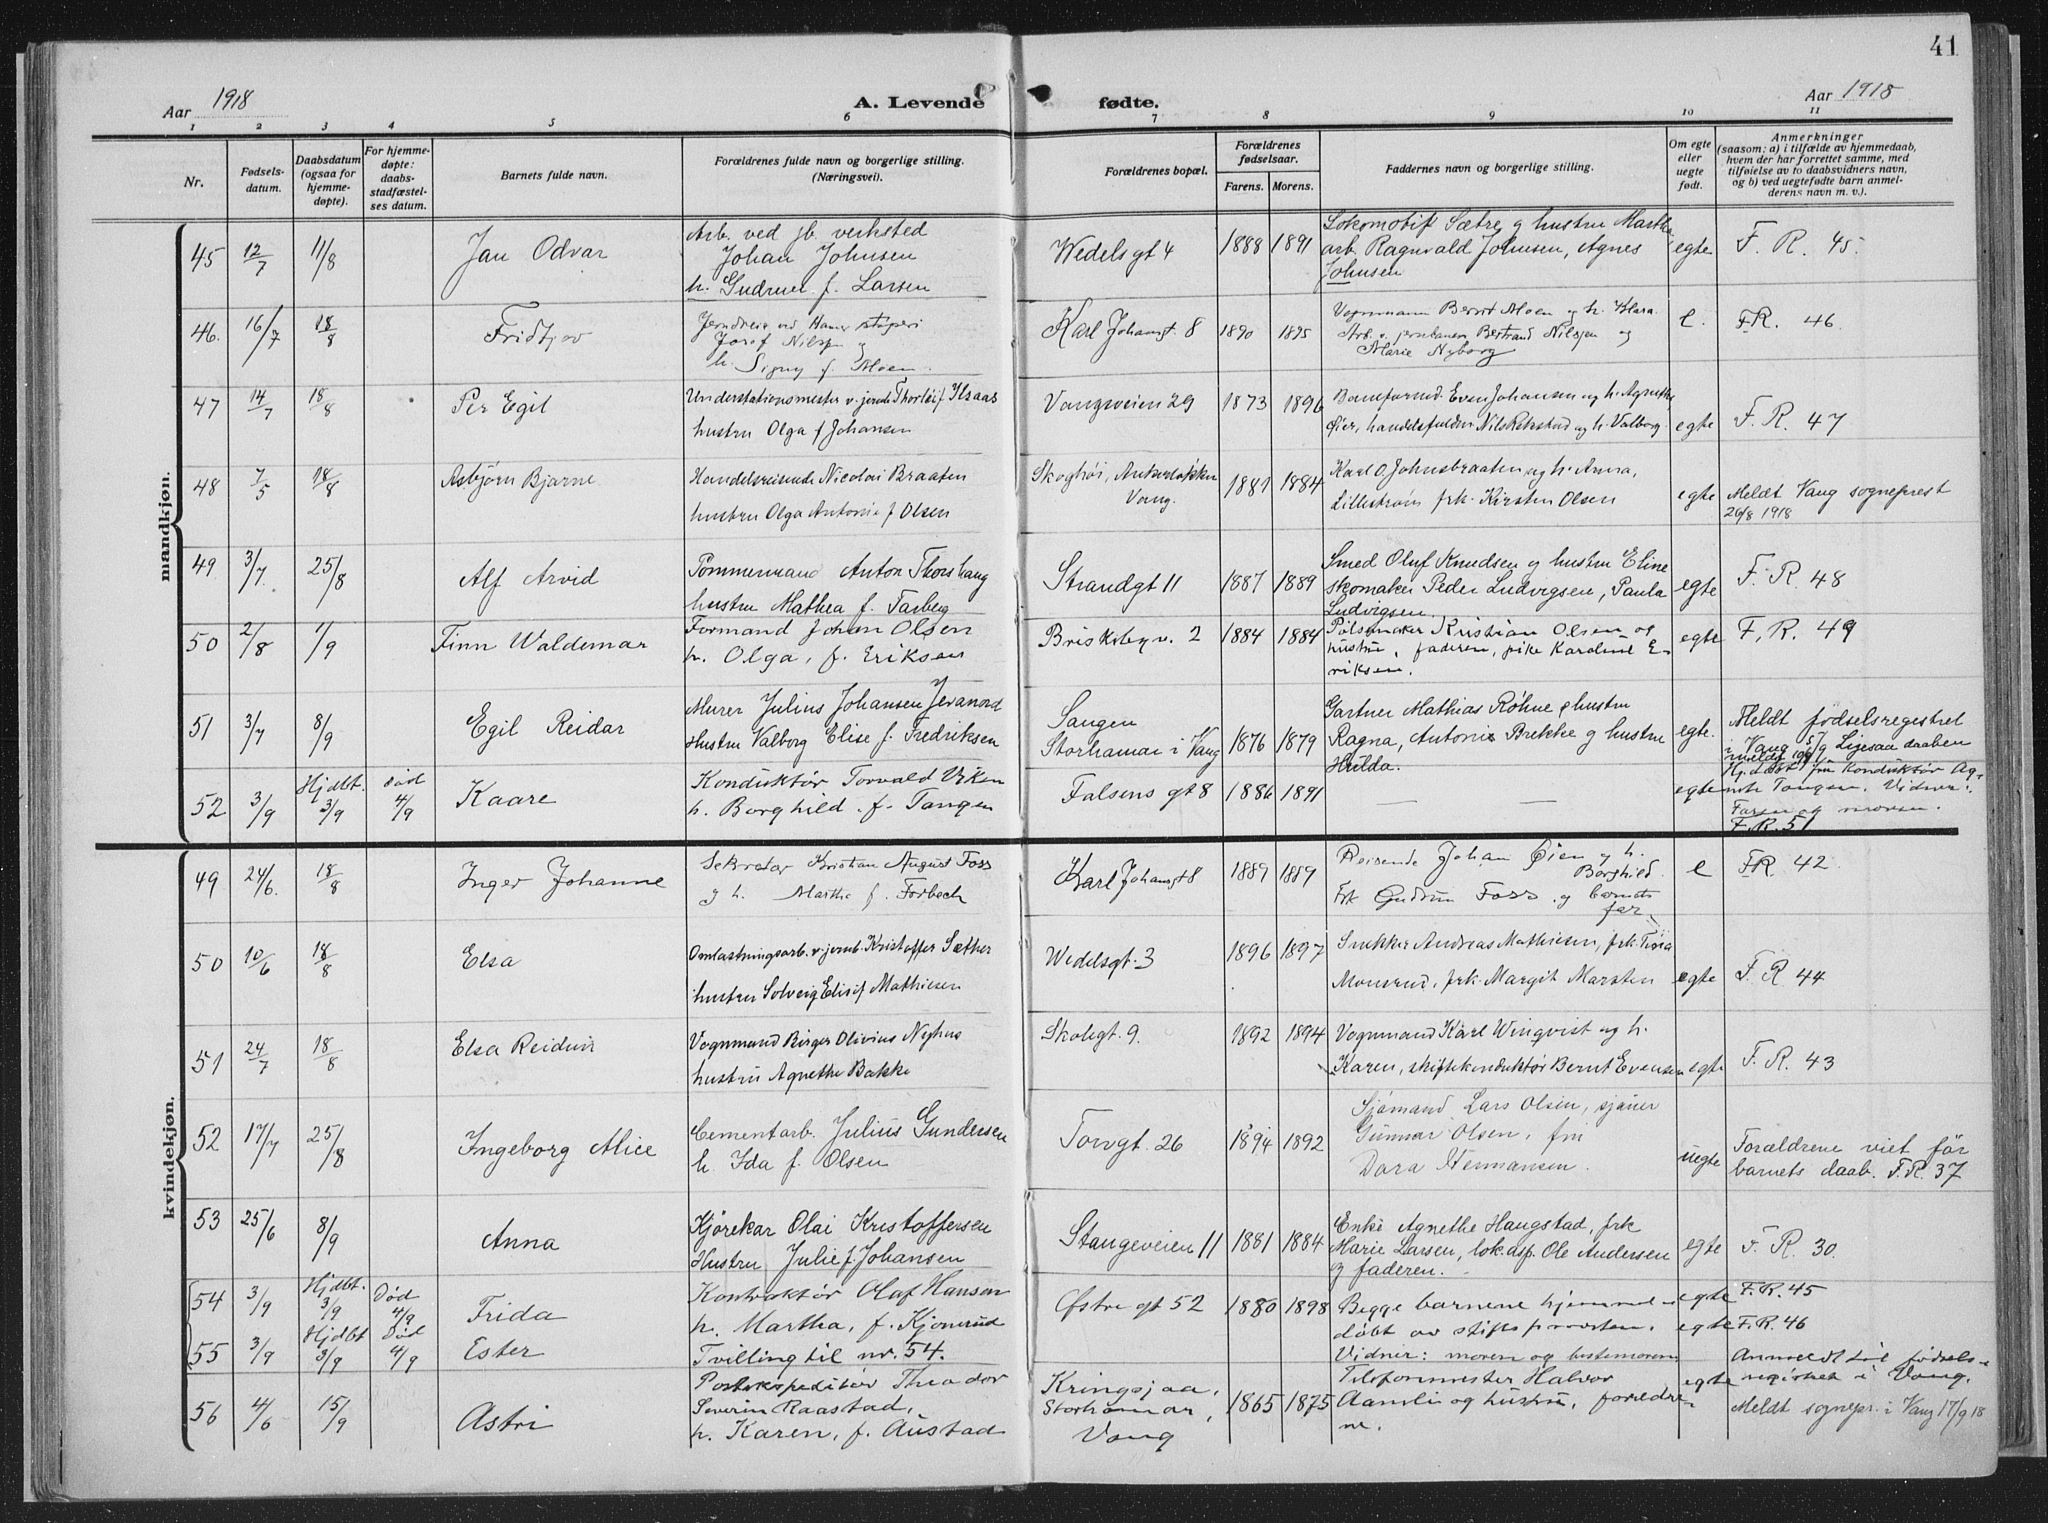 41
Aar 1918
A. Levende fødte.
Aar 1918
1 2 3 4 5 6 7 8 9 10 11
Nr.
Fødselsdatum.
Daabsdatum (ogsaa for hjemmedøpte).
For hjemmedøpte: daabsstadfæstelses datum.
Barnets fulde navn.
Forældrenes fulde navn og borgerlige stilling. (Næringsvei).
Forældrenes bopæl.
Forældrenes fødselsaar.
Farens. Morens.
Faddernes navn og borgerlige stilling.
Om egte eller uegte født.
Anmerkninger (saasom: a) i tilfælde av hjemmedaab, hvem der har forrettet samme, med tilføielse av to daabsvidners navn, og b) ved uegtefødte barn anmelderens navn m. v.).
mandkjøn.
45 12/7 11/8 Jan Odvar
Arb. ved jb. verksted
Johan Johnsen
h. Gudrun f. Larsen
Wedelsgt 4 1888 1891
Lokomotif Sætre og hustru Martha
arb. Ragnvald Johnsen, Agnes
Johnsen
egte F. R. 45.
46. 16/7 18/8 Fridtjov
Josef Nilsen
h. Signy f. Moen.
Karl Johansgt. 8 1890 1895
Vognmann Bernt Moen og h. Klara
Arb. v. jernbanen Bertrand Nilsen og
Marie Nyborg
e. FR. 46
47 14/7 18/8 Per Egil
Understationsmester v. jernb. Thorleif Ilsaas
hustru Olga f Johansen
Vangsveien 29 1873 1896
Baneformd. Even Johansen og h. Agnethe
Øier, handelsfuldm. Nils Rekstad og h. Valborg.
egte F. R. 47
48 7/5 18/8 Asbjørn Bjarne
Handelsreisende Nicolai Braaten
hustru Olga Antonie f Olsen
Skoghøi, Ankerløkken
Vang. 1881 1884
Karl O. Johnsbraaten og h. Anna,
Lillestrøm frk. Kirsten Olsen
egte Meldt Vang sogneprest
26/8 1918
49 3/7 25/8 Alf Arvid
Tømmermand Anton Thorshaug
hustru Mathea f. Tarberg
Strandgt 11 1887 1889
Smed Oluf Knudsen og hustru Eline
skomaker Peder Ludvigsen, Paula
Ludvigsen.
egte F. R. 48
50 2/8 1/9 Finn Waldemar
Formand Johan Olsen
h. Olga, f. Eriksen
Briskebyv. 2 1884 1884
Pølsemaker Kristian Olsen og
hustru, faderen, pike Karoline E-
riksen.
egte F. R. 49
51 3/7 8/9 Egil Reidar
Murer Julius Johansen Jevanord
Hustru Valborg Elise f. Fredriksen
Sangen
Storhamar i Vang 1876 1879
Gartner Mathias Røhne og hustru
Ragna, Antonie Brekke og hustru
Hulda.
egte. Meldt fødselsregistret
i Vang 5/9 Ligesaa daaben
52 3/9 Hjdbt. 3/9 død 4/9 Kaare
Konduktør Torvald Viken
h. Borghild f. Tangen
Falsens gt 8 1886 1891
— —
egte Hj. døbt fru konduktør Ag-
nete Tangen. Vidner:
Faren og moren.
F. R. 51
kvindekjøn.
49 24/6. 18/8 Inger Johanne
Sekretær Kristian August Foss
og h. Martha f. Forbech
Karl Johansgt 8 1889 1889
Reisende Johan Øien og h.
Borghild.
Frk Gudrun Foss og barnets
far.
e FR. 42
50 10/6 18/8 Elsa
Omlastningsarb. v. jernb. Kristoffer Sæther
hustru Solveig Elisif Mathiesen
Wedelsgt. 3 1896 1897
Snekker Andreas Mathiesen, frk. Tina
Monsrud, frk. Margit Marsten
egte F. R 44
51 24/7 18/8 Elsa Reidun
Vognmand Birger Olivius Nyhus
hustru Agnethe Bakke
Skolegt. 9. 1892 1894
Vognmand Karl Winqvist og h.
Karen, skiftekonduktør Bernt Evensen
egte F. R. 43
52 17/7 25/8 Ingeborg Alice
Cementarb. Julius Gundersen
h. Ida f. Olsen
Torvgt. 26 1894 1892
Sjømand Lars Olsen, sjauer
Gunnar Olsen, frk
Dara Hermansen.
uegte Forældrene viet før
barnets daab. F. R. 37
53 25/6 8/9 Anna
Kjørekar Olai Kristoffersen
Hustru Julie f. Johansen
Stangeveien 11 1881 1884
Enke Agnethe Haugstad, frk
Marie Larsen, lok. dsp. Ole Andersen
og faderen.
egte F. R. 30.
54 3/9 Hjdbt. 3/9 Død 4/9 Frida
Kontraktør Olaf Hansen
h. Martha, f. Kjonerud
Østre gt 52 1880 1898
Begge barnene hjemme-
døbt av stiftsprovsten.
egte F. R. 45
55 3/9 Hjdbt 3/9 Død 4/9 Ester
Tvilling til nr. 54.
Vidner: moren og bestemoren
egte F. R. 46
56 4/6 15/9 Astri
Postekspeditør Theodor
Severin Raastad,
h. Karen, f. Austad
Kringsjaa,
Storhamar,
Vang 1865 1875
Telefonmester Halvor
Aamlie og hustru, foreldre-
ne.
egte Anmeldt til fødsels-
registret i Vang.
Meldt sognepr. i Vang 17/9 18